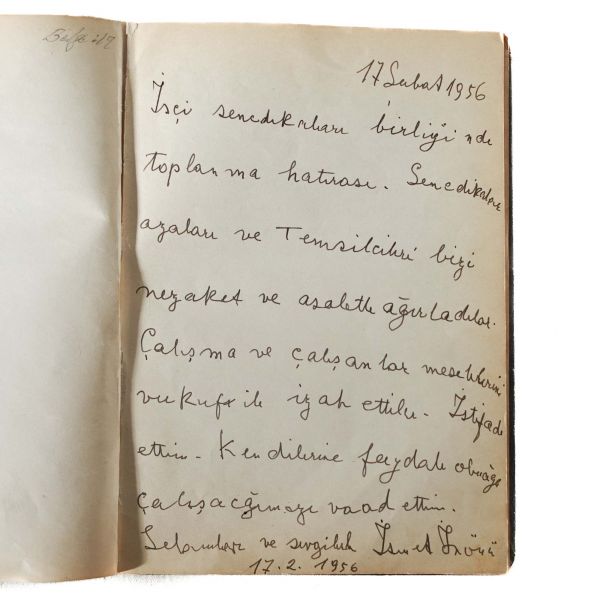 17 Şubat 1956
İşçi sendikaları birliği'nde
toplanma hatırası. Sendikalar
azaları ve Temsilcileri bizi
nezaket ve asaletle ağırladılar.
Çalışma ve çalışanlar meselelerini
vukufla izah ettiler. İstifade
ettim. Kendilerine faydalı olmağa
çalışacağımızı vaad ettim.
Selamlar ve sevgiler İsmet İnönü
17.2.1956